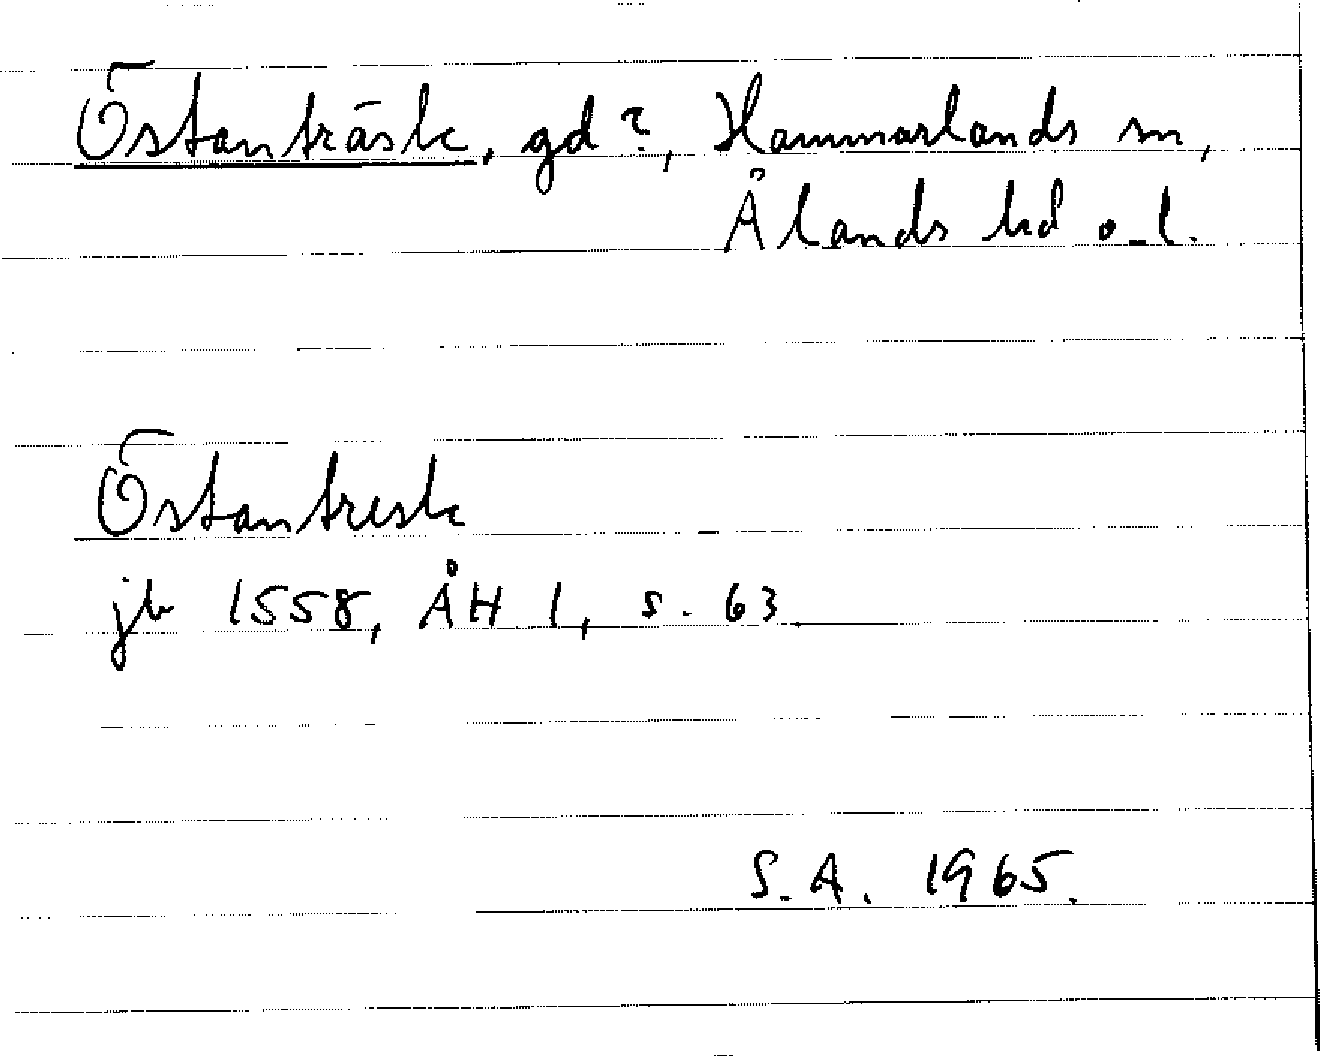 Östanträsk, gd?, Hammarlands sn,
Ålands hd o. l.
Östantresk
jb 1558, ÅH 1, s. 63.
S.A. 1965.